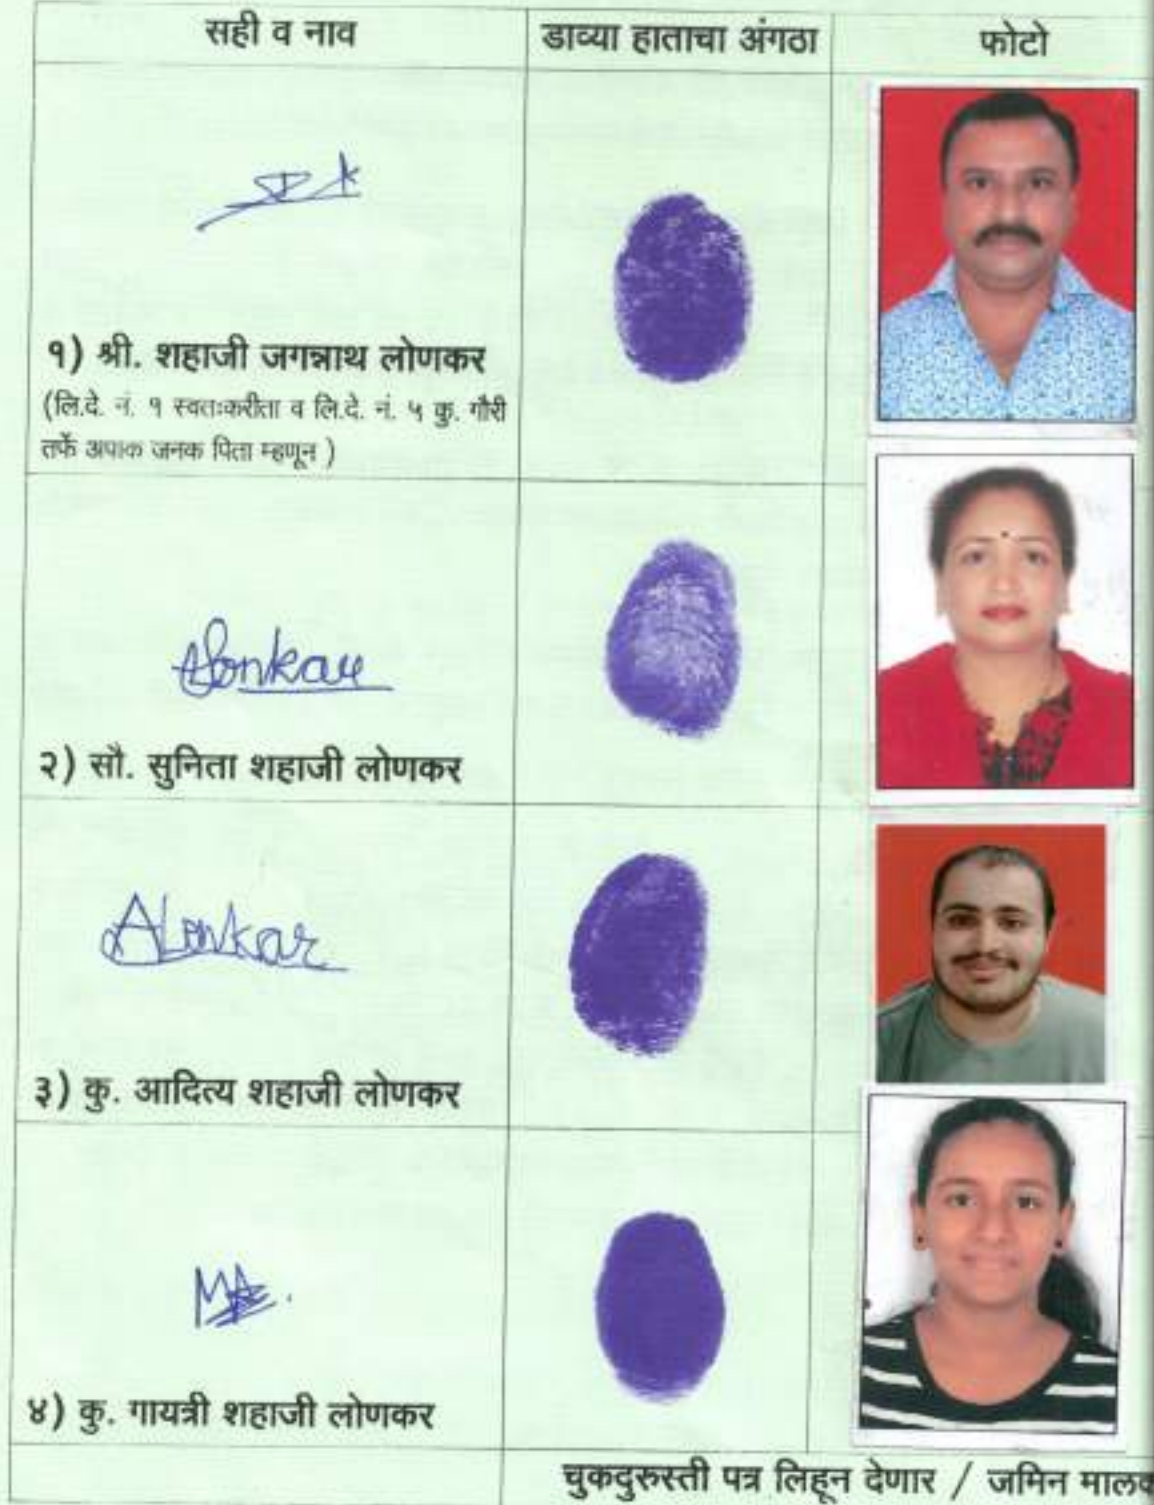 सही व नाव
डाव्या हाताचा अंगठा
फोटो
१) श्री. शहाजी जगन्नाथ लोणकर
(लि.दे. नं. १ स्वतःकरीता व लि.दे. नं. ५ कु. गौरी
तर्फे अपाक जनक पिता म्हणून )
Slonkar
२) सौ. सुनिता शहाजी लोणकर
ALonkar
३) कु. आदित्य शहाजी लोणकर
४) कु. गायत्री शहाजी लोणकर
चुकदुरुस्ती पत्र लिहून देणार / जमिन मालक